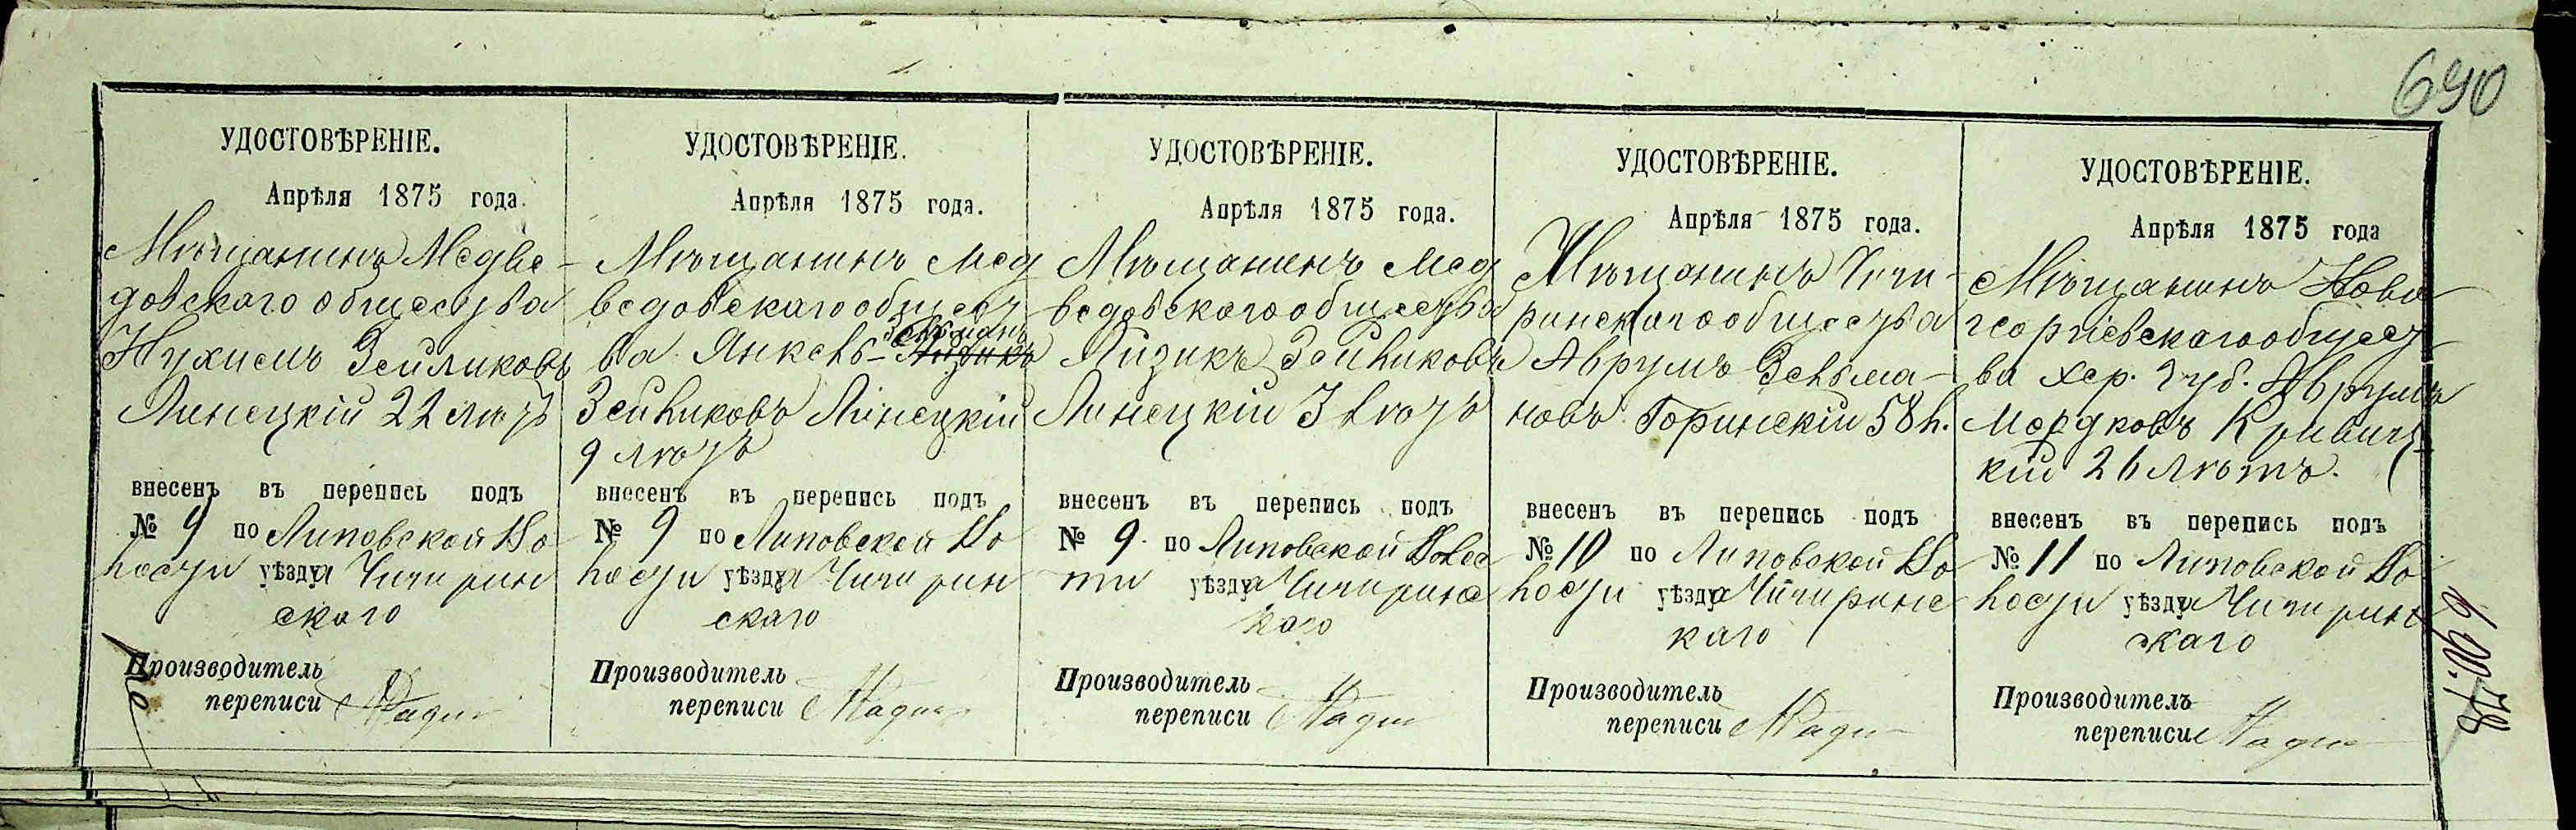 690
УДОСТОВѢРЕНІЕ.
Апрѣля 1875 года.
Мѣщанинъ Медве-
довскаго общества
Нухимъ Зейликовъ
Линецкій 22 лѣтъ
внесенъ въ перепись подъ
№ 9 по Липовской Во
лости уѣзда Чигирин
скаго
Производитель
переписи
УДОСТОВѢРЕНІЕ.
Апрѣля 1875 года.
Мѣщанинъ Мед
ведовскаго общест
Зельманъ
ва Янкель-Айзикъ
Зейликовъ Линецкій
9 лѣтъ
внесенъ въ перепись подъ
№ 9 по Липовской Во
лости уѣзда Чигирин
скаго
Производитель
переписи
УДОСТОВѢРЕНІЕ.
Апрѣля 1875 года.
Мѣщанинъ Мед
ведовскаго общества
Айзикъ Зейликовъ
Линецкій 3 лѣтъ
внесенъ въ перепись подъ
№ 9. по Липовской Волос
ти уѣзда Чигиринс
каго
Производитель
переписи
УДОСТОВѢРЕНІЕ.
Апрѣля 1875 года.
Мѣщанинъ Чиги-
ринскаго общества
Аврумъ Зельма-
новъ Горинскій 58 л.
внесенъ въ перепись подъ
№ 10 по Липовской Во
лости уѣзда Чигиринс
каго
Производитель
переписи
УДОСТОВѢРЕНІЕ.
Апрѣля 1875 года
Мѣщанинъ Ново
георгіевскаго общест
ва Хер. губ. Аврумъ
Мордковъ Кривиц
кій 26 лѣтъ.
внесенъ въ перепись подъ
№ 11 по Липовской Во
лости уѣзда Чигиринс
каго
Производитель
переписи